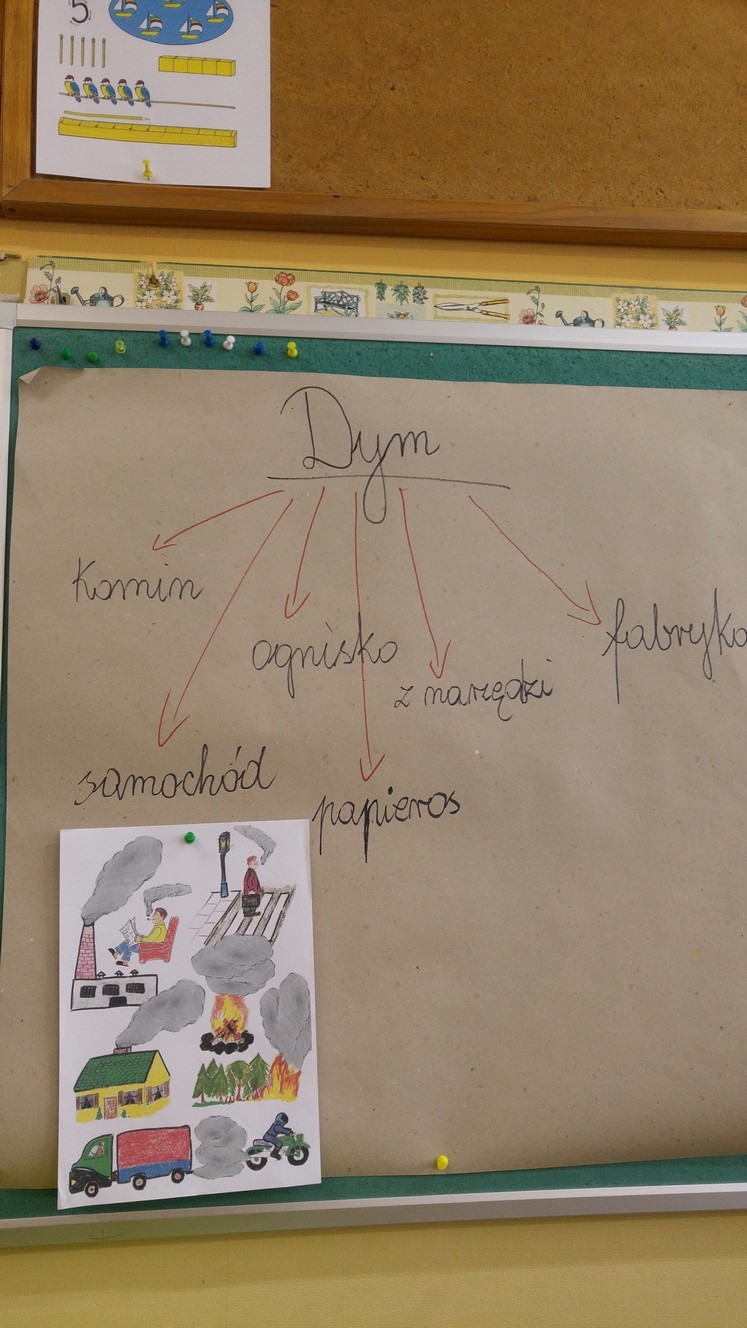 5
Dym
komin
ognisko
fabryka
z narzędzi
samochód
papieros